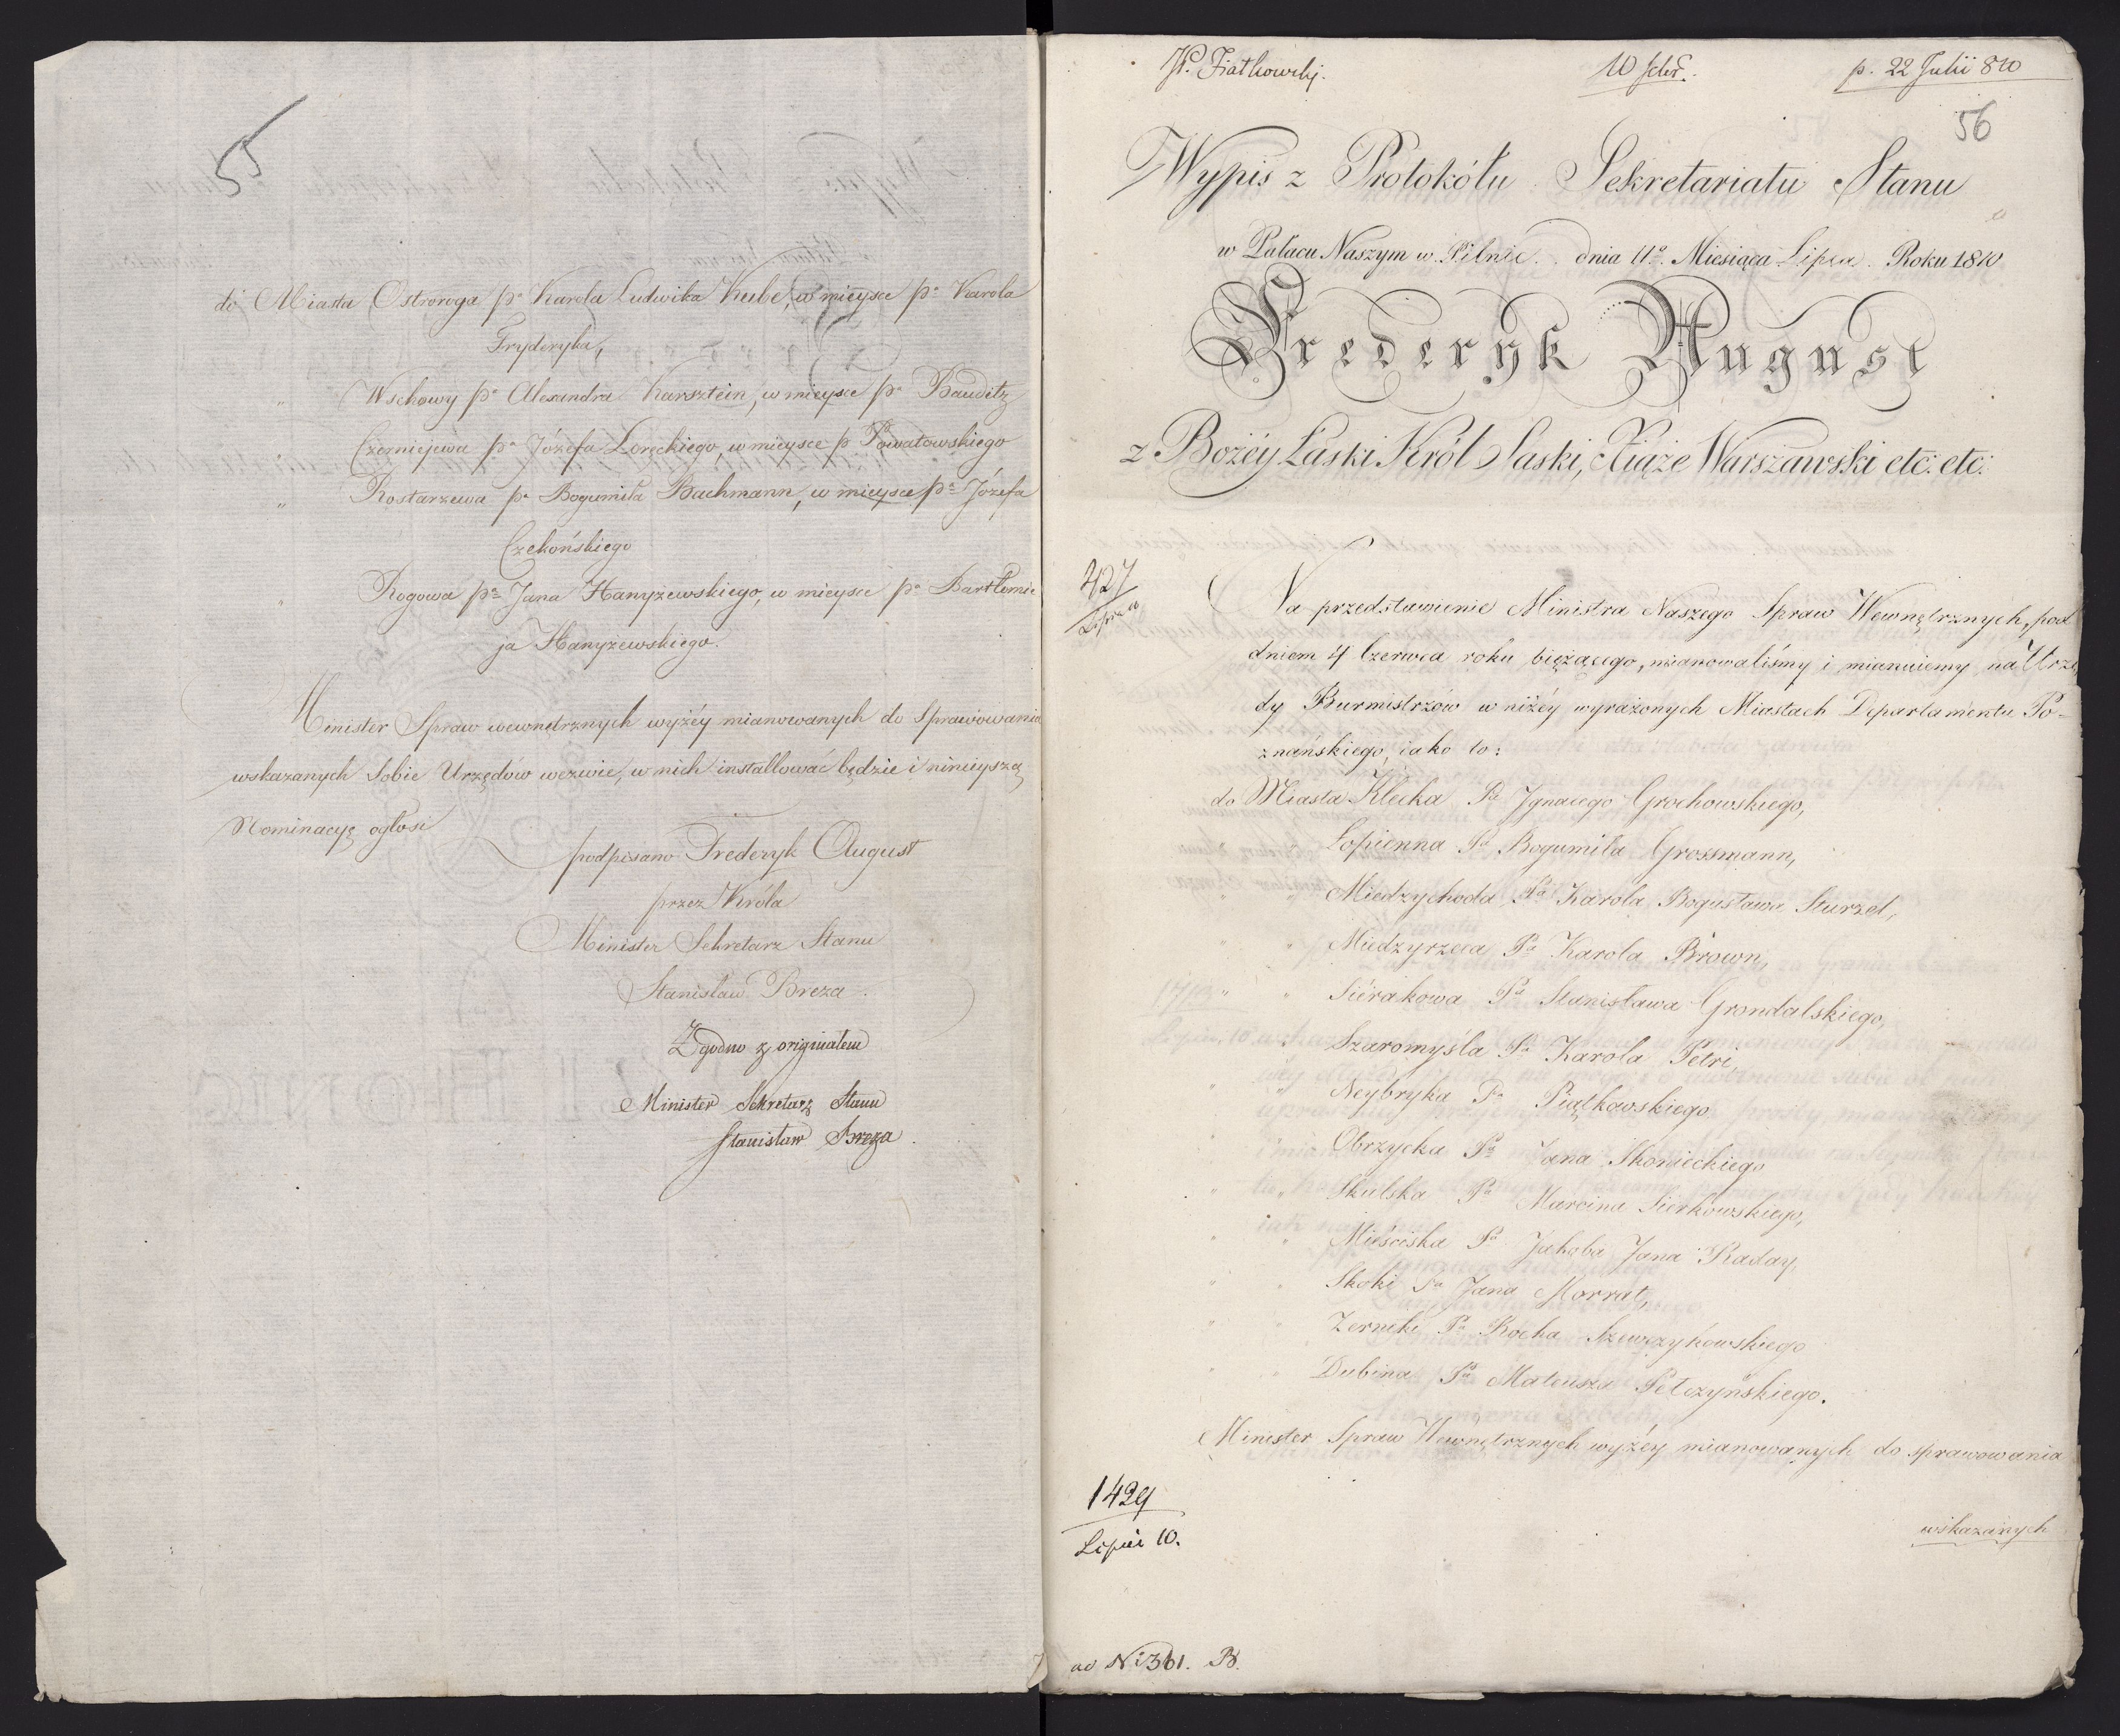 55
do Miasta Ostroroga pa Karola Ludwika Kube, w mieysce pa Karola
Fryderyka,
" Wschowy pa Alexandra Karsztein, w mieysce pa Bauditz
" Czerniejewa pa Józefa Loręckiego, w mieysce p Powatowskiego
" Rostarzewa pa Bogumiła Bachmann, w mieysce pa Józefa
Czekońskiego
" Rogowa pa Jana Hanyżewskiego, w mieysce pa Bartłomie
ja Hanyżewskiego.
Minister Spraw wewnętrznych wyżéy mianowanych do Sprawowania
wskazanych Sobie Urzędów wezwie, w nich installować będzie i ninieyszą
Nominacyę ogłosi
podpisano Frederyk August
przez Króla
Minister Sekretarz Stanu
Stanisław Breza.
Zgodno z originałem
Minister Sekretarz Stanu
Stanisław Breza.
10
p. 22 Julii 810
56
Wypis z Protokółu Sekretariatu Stanu
w Pałacu Naszym w Pilnic. dnia 11o. Miesiąca Lipca. Roku 1810
Frederyk August
z Bożéy Łaski Król Saski, Xiąże Warszawski etc: etc:
427
Na przedstawienie Ministra Naszego Spraw Wewnętrznych, pod
dniem 4 Czerwca roku bieżącego, mianowaliśmy i mianuiemy na Urzę
dy Burmistrzów w niżéy wyrażonych Miastach Departamentu Po-
znańskiego, iako to:
do Miasta Klecka Pa Jgnacego Grochowskiego,
Łopienna Pa Bogumiła Grossmann,
" " Miedzychoda Pa Karola Bogusława Sturzel,
" " Miedzyrzeca Pa Karola Brown,
" " Siérakowa Pa Stanisława Grondalskiego,
" Szaromyśla Pa Karola Petri,
" " Neybryka Pa Piątkowskiego
" Obrzycka Pa Jana Skonieckiego
" " Skulska Pa Marcina Sierkowskiego,
" " Mieściska Pa Jakoba Jana Raday,
" " Skoki Pa Jana Marrat,
" " Zerniki Pa Rocha Szewczykowskiego
" " Dubina Pa Mateusza Pełczyńskiego.
Minister Spraw Wewnętrznych wyżéy mianowanych do sprawowania
1429
Lipca 10.
wskazanych
ad No 361. B.